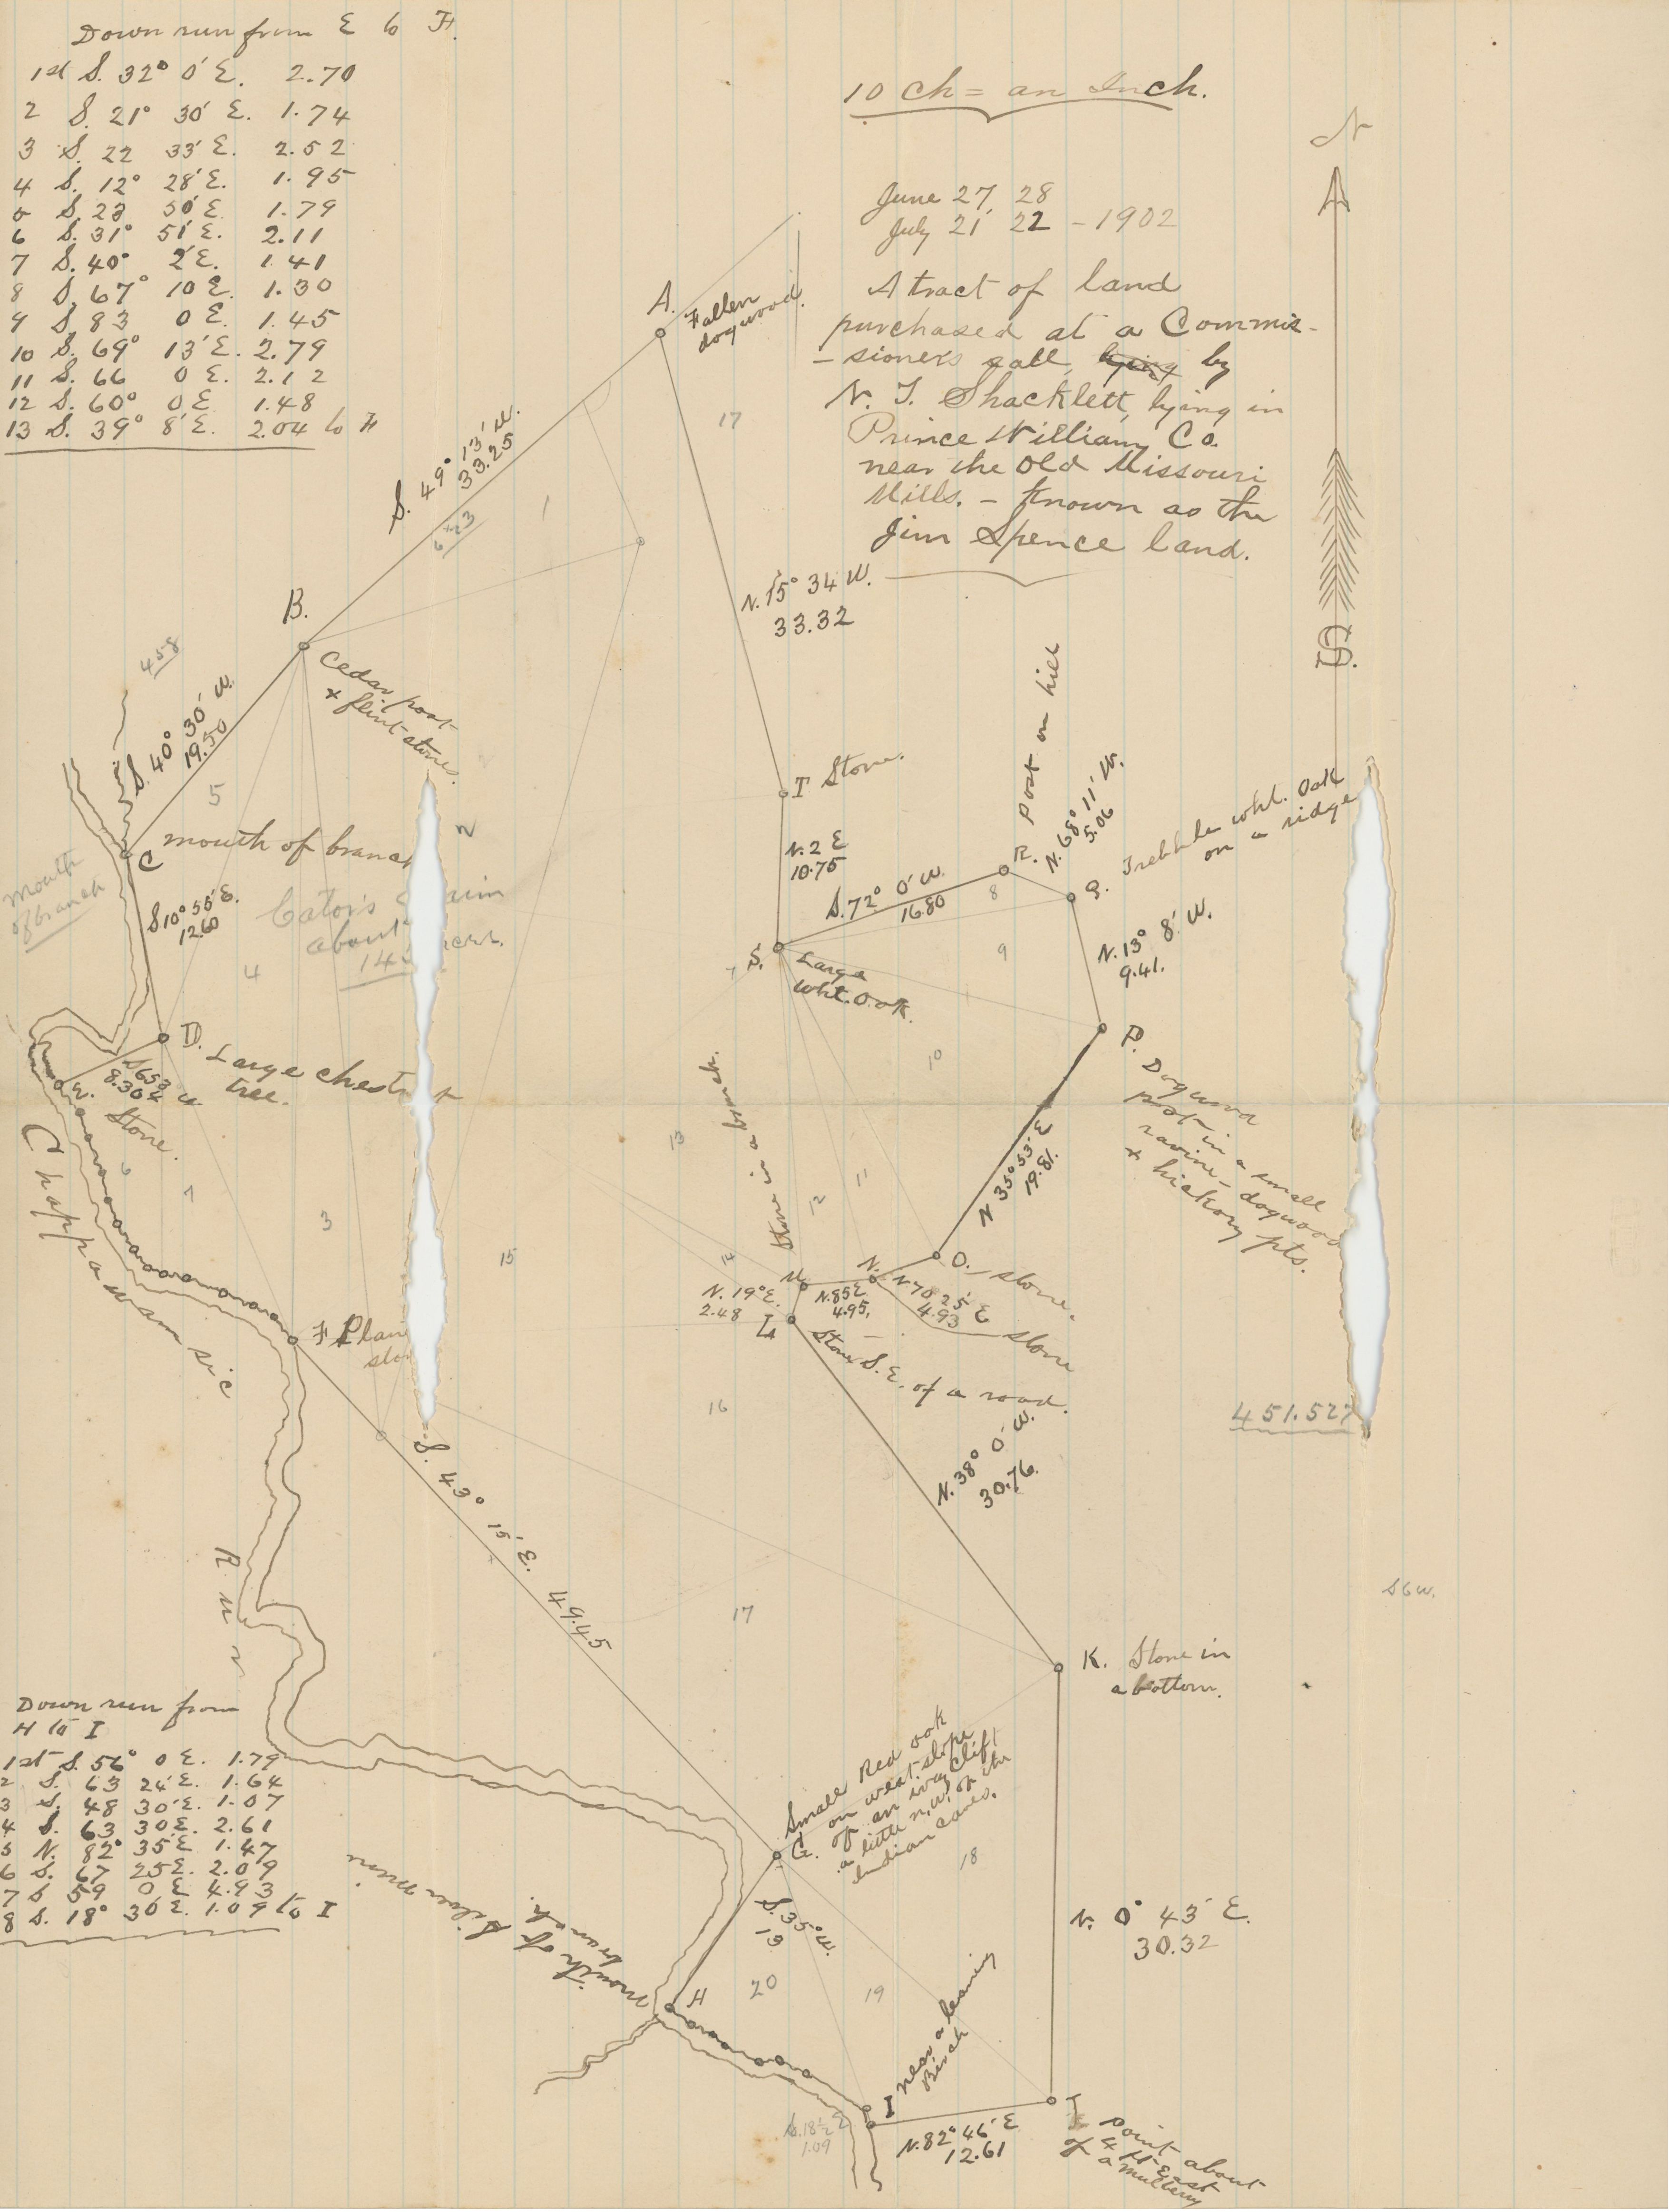 Down run from E to F.
1st S. 32° 0' E. 2.70
2 S. 21° 30' E. 1.74
3 S. 22 33' E. 2.52
4 S. 12° 28' E. 1.95
5 S. 23 50' E. 1.79
6 S. 31° 51' E. 2.11
7 S. 40° 2' E. 1.41
8 S. 67° 10 E. 1.30
9 S. 83 0 E. 1.45
10 S. 69° 13' E. 2.79
11 S. 66 0 E. 2.12
12 S. 60° 0 E 1.48
13 S. 39° 8' E. 2.04 to F
10 Ch = an Inch.
N
June 27, 28
July 21, 22 - 1902
A tract of land
purchased at a Commis-
-sioner's sale, by
N. T. Shacklett, lying in
Prince William Co.
near the Old Missouri
Mills. - known as the
Jim Spence land.
S.
A.
Fallen
dogwood.
17
S. 49° 13' W.
33.25
1
N. 15° 34 W.
33.32
B.
Cedar post
+ flint stones.
458
S. 40° 30' W.
19.50
5
2
C mouth of branch
mouth
of branch
S 10° 55' E.
12.60
Cator's
about
4
T Stone.
N. 2 E
10.75
S. 72° 0' W.
16.80
R. Post on hill
N. 68° 11' W.
5.06
8
Q. Trebble wht. Oak
on a ridge
9
N. 13° 8' W.
9.41.
S. Large
wht. Oak.
10
P. Dogwood
post in a small
ravine - dogwood
+ hickory pts.
D. Large chestnut
tree.
8.30
E. Stone.
6
7
3
15
13
12
11
14
Stone in a branch.
N 35° 53' E
19.81.
O. stone.
N. stone
N 70 25' E
4.93
M
N. 85 E
4.95.
N. 19° E.
2.48
L Stone S.E. of a road.
Chappawamsic
Run
F
16
451.527
S. 43° 15' E. 49.45
N. 38° 0' W.
30.76.
17
S6W.
K. Stone in
a bottom.
Down run from
H to I
1st S. 56° 0 E. 1.79
2 S. 63 24' E. 1.64
3 S. 48 30' E. 1.07
4 S. 63 30 E. 2.61
5 N. 82° 35 E 1.47
6 S. 67 25 E. 2.09
7 S 59 0 E 4.93
8 S. 18° 30' E. 1.09 to I
G. Small Red oak
on west slope
of an ivy clift
a little n.w. of the
Indian caves.
18
S. 35° W.
13
mouth of Silver Mine
branch.
H
20
19
N. 0° 43' E.
30.32
I near a leaning
Birch
S. 18½ E
1.09
N. 82° 46' E
12.61
J
Point about
4 ft East
of a mulberry